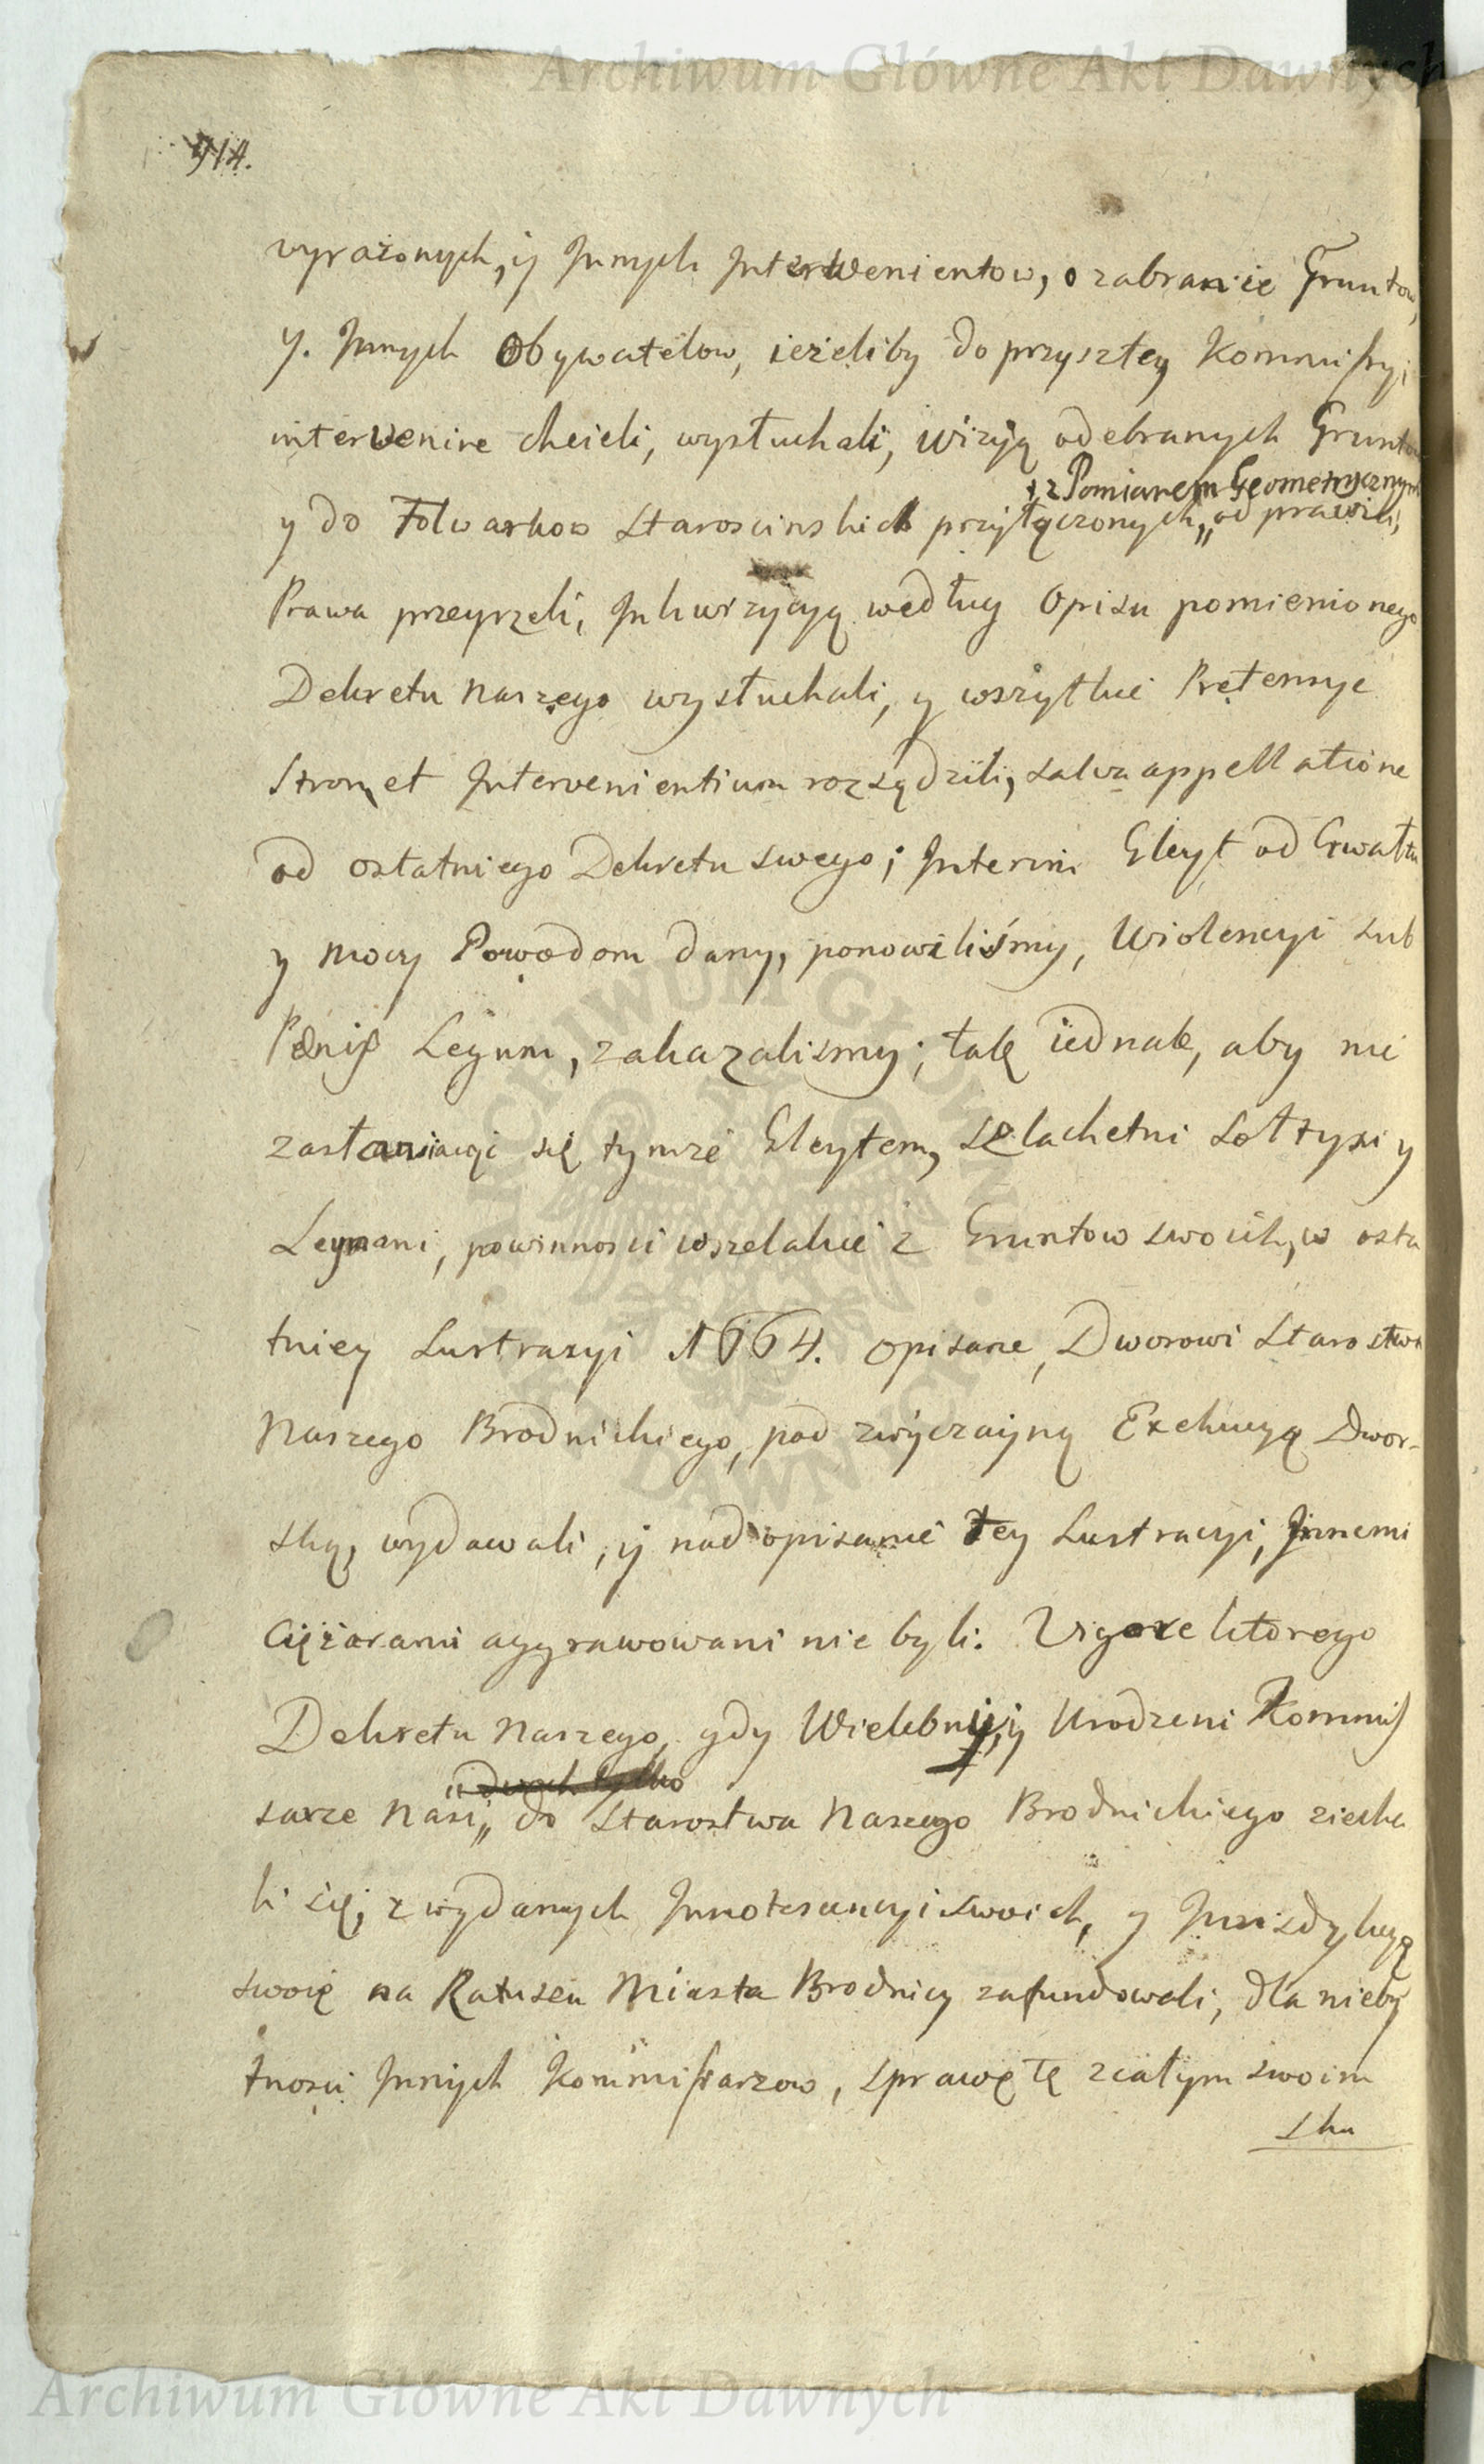 Archiwum Główne Akt Dawnych
914.
wyrażonych, ÿ Jnnych Interwenientow, o zabranie Gruntow,
y. Jnnych Obywatelow, ieżeliby do przyszłey Kommißyi
intervenire chcieli, wysłuchali, wizyą odebranych Gruntow
z Pomiarem Geometrycznym
y do Folwarkow Staroscinskich przyłączonych, odprawili,
Prawa przeyrzeli, Inkwizycyą według Opisu pomienionego
Dekretu Naszego wysłuchali, y wszytkie Pretensye
Stron, et Intervenientium rozsądzili, salva appellatione
od ostatniego Dekretu swego; Interim Gleyt od Gwałtu
y mocy Powodom dany, ponowiliśmy, Wiolencyi sub
Pœniß Legum, zakazalismy; tak iednak, aby nie
zastaniaiąc się tymże Gleytem, Szlachetni Sołtysi y
Leymani, powinnosci wszelakie z Gruntow swoich, w osta
tniey Lustracyi 1664. opisane, Dworowi Starostwa
Naszego Brodnickiego, pod zwyczayną Exekucyą Dwor-
ską, wydawali, ÿ nad opisanie tey Lustracyi, Jnnemi
Ciężarami aggrawowani nie byli. Vigore ktorego
Dekretu Naszego, gdy Wielebni, ÿ Urodzeni Kommis
sarze Nasi, do Starostwa Naszego Brodnickiego ziecha
li się, z wydanych Innotescencyi swoich, y Jurisdykcyą
swoię na Ratuszu Miasta Brodnicy zafundowali, dla nieby
tnosci Jnnych Kommißarzow, sprawę tę z całym swoim
sku
ARCHIWUM GŁÓWNE AKT DAWNYCH
Archiwum Główne Akt Dawnych